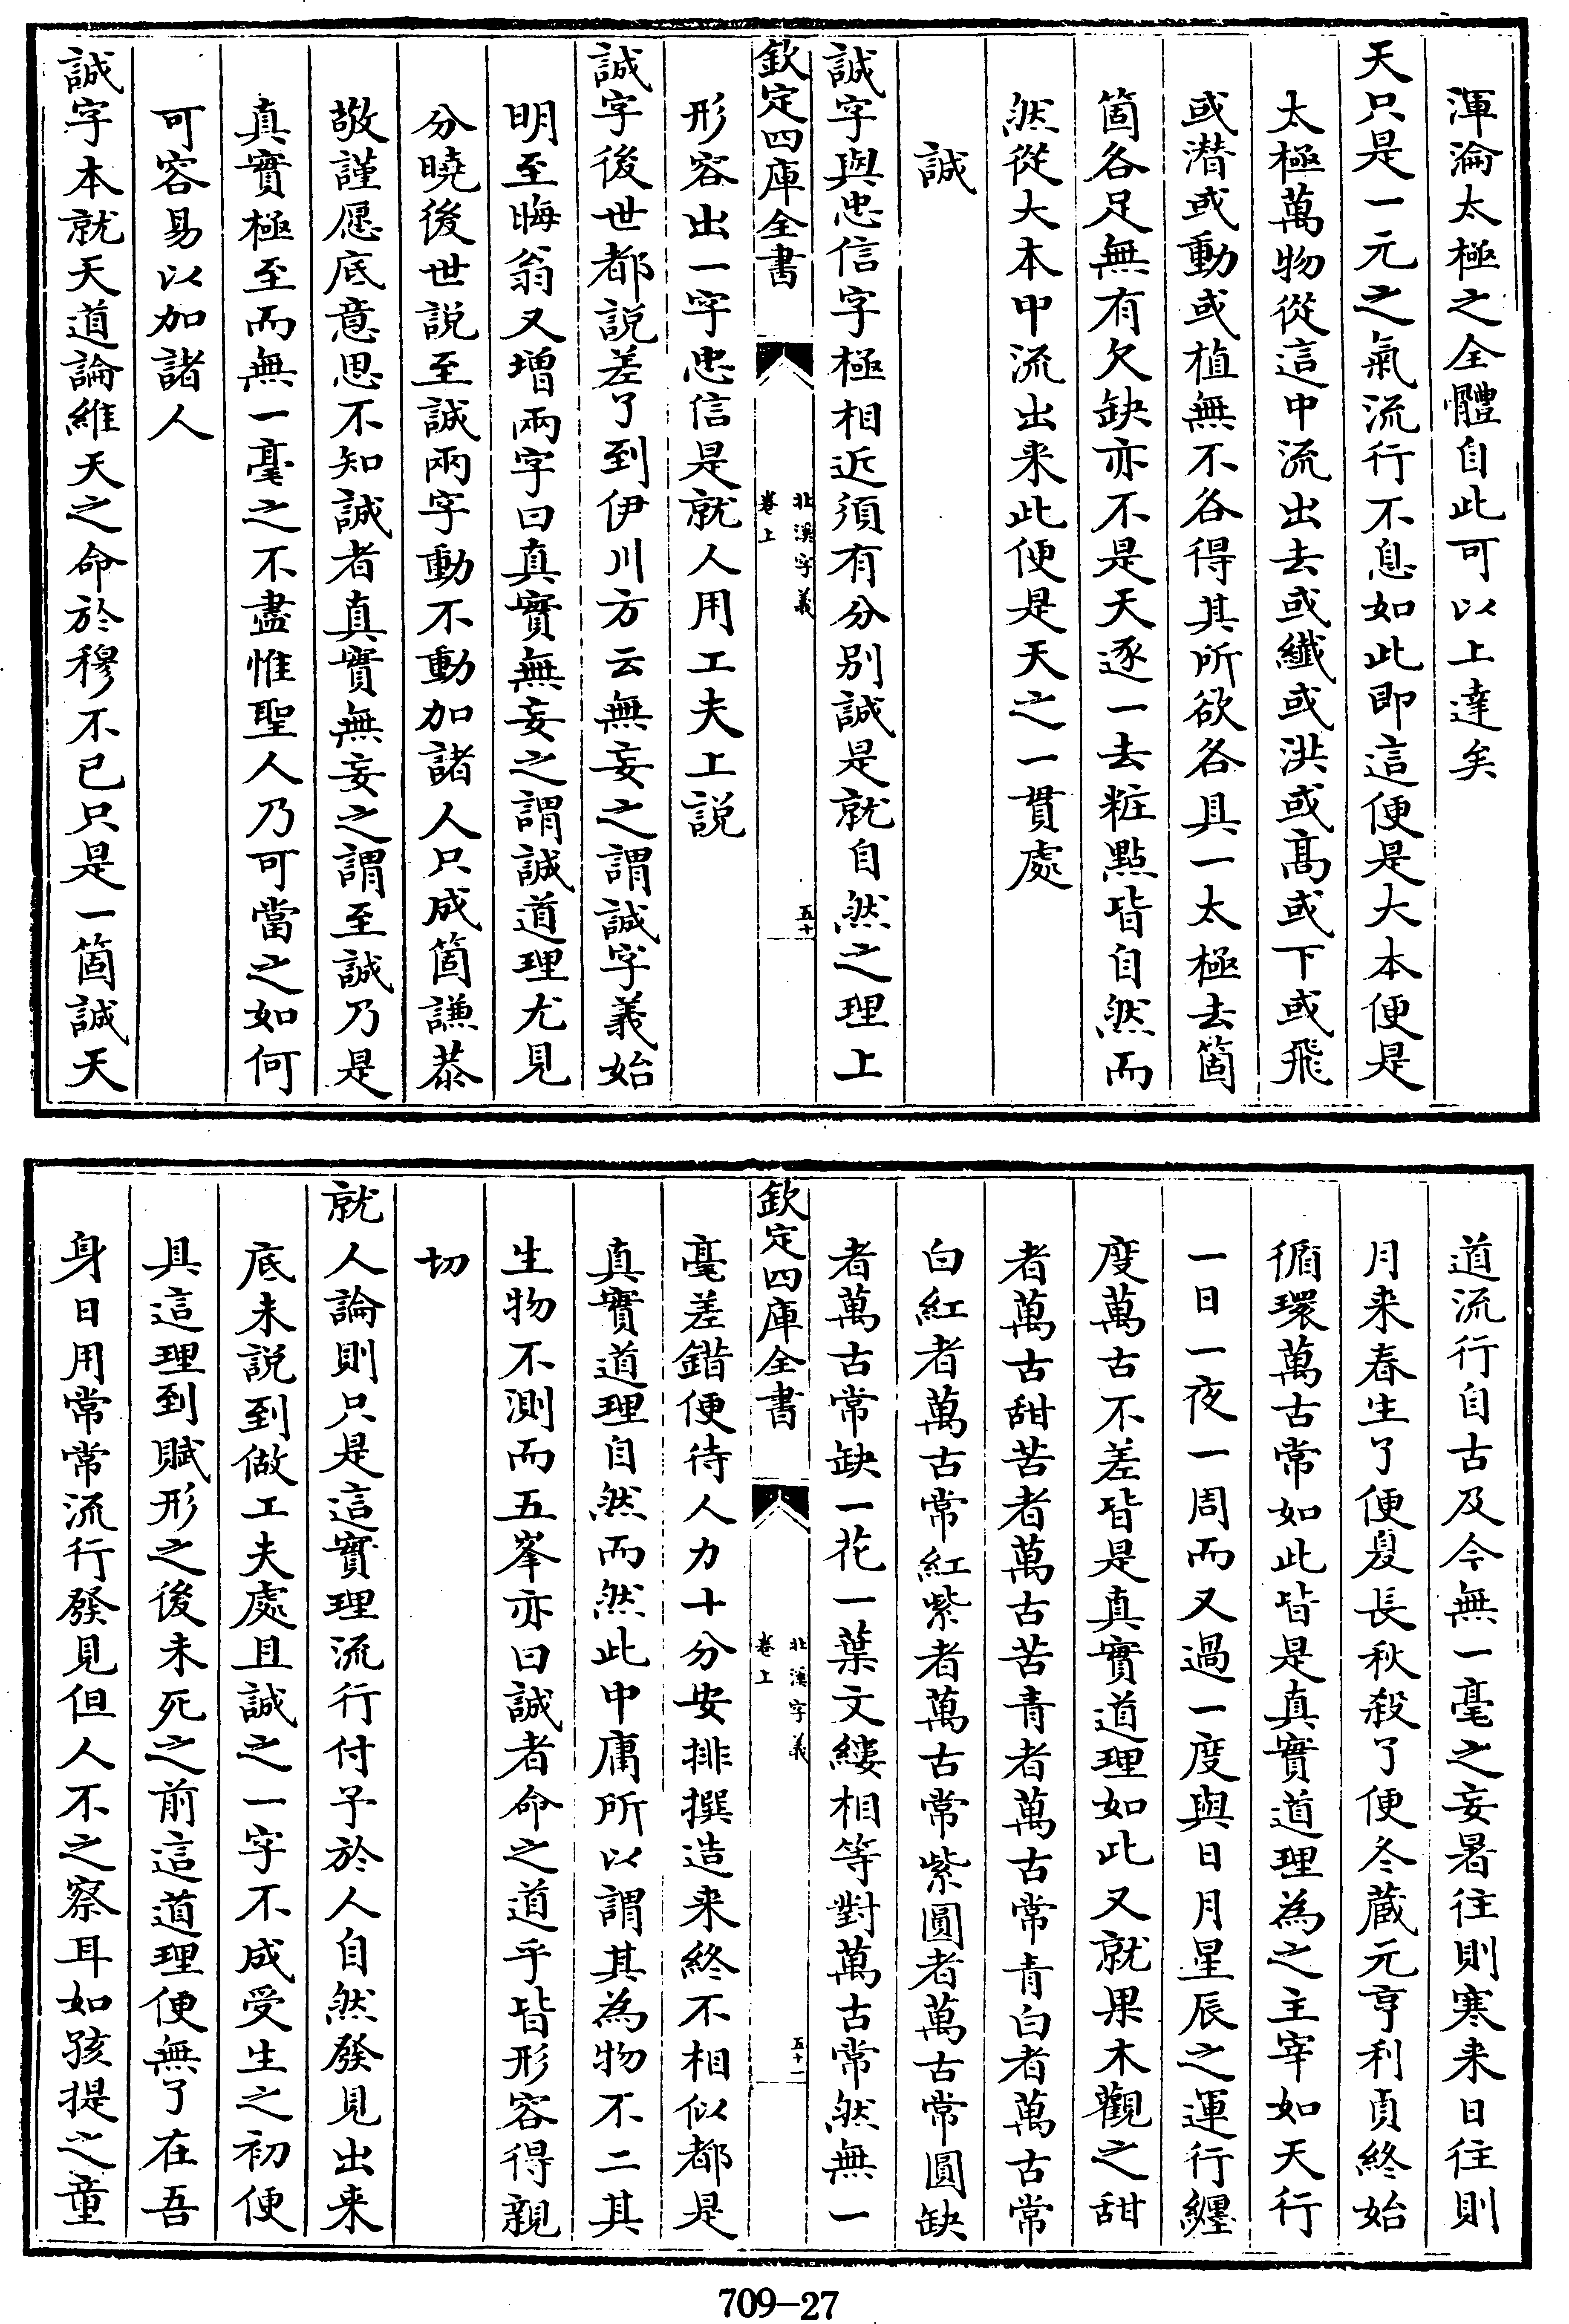 渾淪太極之全體自此可以上達矣
天只是一元之氣流行不息如此即這便是大本便是
太極萬物從這中流出去或纖或洪或髙或下或飛
或潜或動或植無不各得其所欲各具一太極去箇
箇各足無有欠缺亦不是天逐一去粧點皆自然而
然從大本中流出来此便是天之一貫處
誠
誠字與忠信字極相近須有分别誠是就自然之理上
欽定四庫全書
北溪字義
卷上
五十
形容出一字忠信是就人用工夫上説
誠字後世都説差了到伊川方云無妄之謂誠字義始
明至晦翁又增兩字曰真實無妄之謂誠道理尤見
分曉後世説至誠兩字動不動加諸人只成箇謙恭
敬謹愿底意思不知誠者真實無妄之謂至誠乃是
真實極至而無一毫之不盡惟聖人乃可當之如何
可容易以加諸人
誠字本就天道論維天之命於穆不已只是一箇誠天
道流行自古及今無一毫之妄暑往則寒来日往則
月来春生了便夏長秋殺了便冬蔵元亨利貞終始
循環萬古常如此皆是真實道理為之主宰如天行
一日一夜一周而又過一度與日月星辰之運行纏
度萬古不差皆是真實道理如此又就果木觀之甜
者萬古甜苦者萬古苦青者萬古常青白者萬古常
白紅者萬古常紅紫者萬古常紫圓者萬古常圓缺
者萬古常缺一花一葉文縷相等對萬古常然無一
欽定四庫全書
北溪字義
卷上
五十一
毫差錯便待人力十分安排撰造来終不相似都是
真實道理自然而然此中庸所以謂其為物不二其
生物不測而五峯亦曰誠者命之道乎皆形容得親
切
就人論則只是這實理流行付予於人自然發見出来
底未説到做工夫處且誠之一字不成受生之初便
具這理到賦形之後未死之前這道理便無了在吾
身日用常常流行發見但人不之察耳如孩提之童
709-27